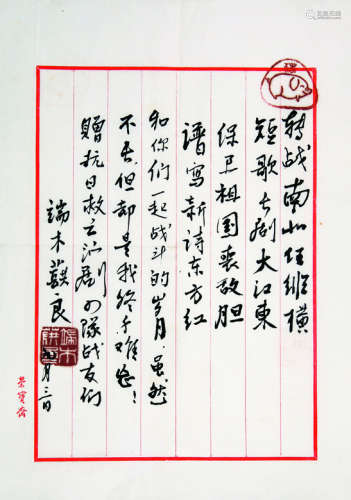 转战南北任纵横
短歌长剧大江東
保卫祖国丧敌胆
谱写新诗东方红
和你们一起战斗的岁月，虽然
不长，但却是我终生难忘！
赠抗日救亡演剧九队战友们
端木蕻良
月三日
荣宝斋